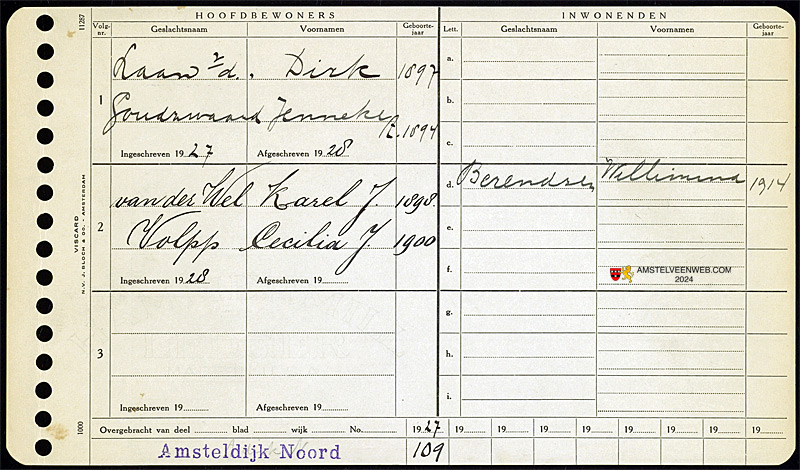 HOOFDBEWONERS INWONENDEN
Volg-nr. Geslachtsnaam Voornamen Geboorte-jaar Lett. Geslachtsnaam Voornamen Geboorte-jaar
11287
1
Laan v/d. Dirk 1897
Goudswaard Jenneke
A. 1894
Ingeschreven 1927 Afgeschreven 1928
a.
b.
c.
2
van der Wel Karel J. 1898.
Volpp Cecilia J. 1900
Ingeschreven 1928 Afgeschreven 19
d. Berendsen Willemina 1914
e.
f.
AMSTELVEENWEB.COM
2024
3
Ingeschreven 19 Afgeschreven 19
g.
h.
i.
VISCARD
N.V. J. BLOCH & Co. - AMSTERDAM
1000
Overgebracht van deel blad wijk No. 1927 19 19 19 19 19 19 19 19
Amsteldijk Noord 109